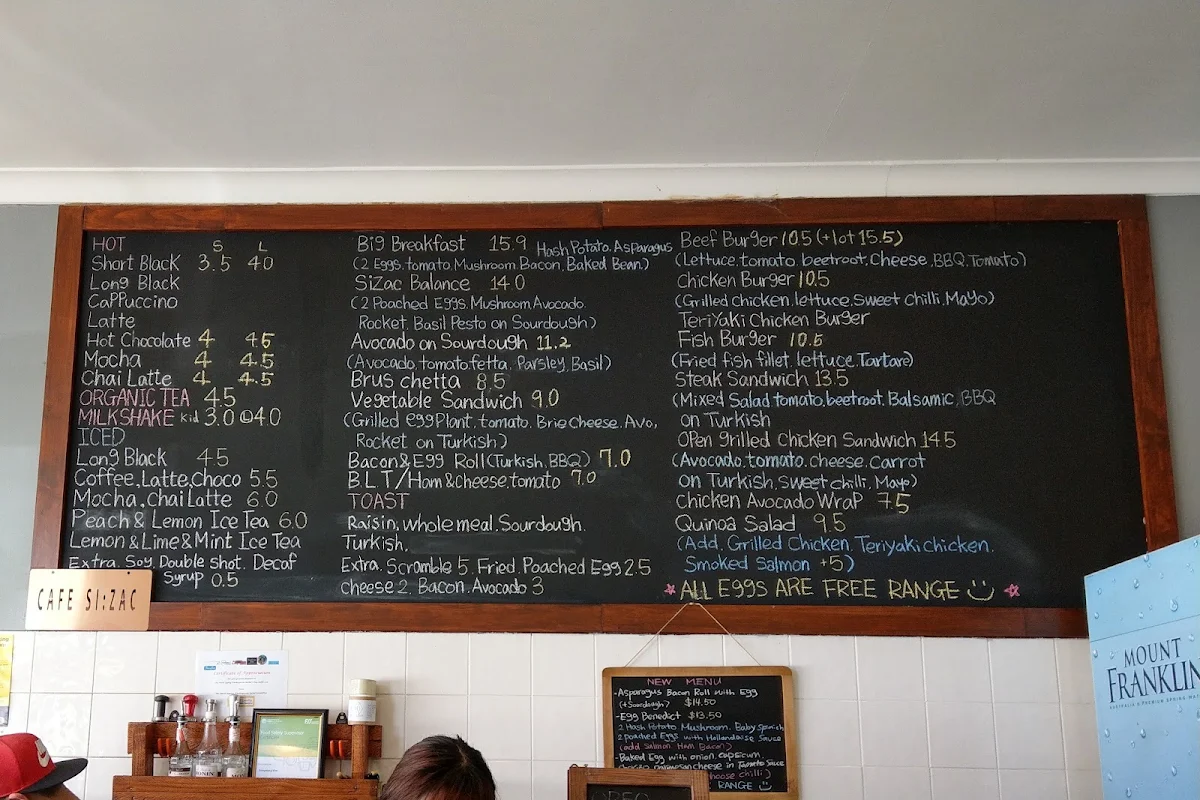 HOT S L
Short Black 3.5 4.0
Long Black
Cappuccino
Latte
Hot Chocolate 4 4.5
Mocha 4 4.5
Chai Latte 4 4.5
ORGANIC TEA 4.5
MILKSHAKE Kid 3.0 L 4.0
ICED
Long Black 4.5
Coffee, Latte, Choco 5.5
Mocha, Chai Latte 6.0
Peach & Lemon Ice Tea 6.0
Lemon & Lime & Mint Ice Tea
Extra. Soy, Double shot, Decaf
Syrup 0.5
Big Breakfast 15.9 Hash Potato, Asparagus
(2 Eggs, tomato, Mushroom Bacon, Baked Bean)
SiZac Balance 14.0
(2 Poached Eggs, Mushroom Avocado
Rocket, Basil Pesto on Sourdough)
Avocado on Sourdough 11.2
(Avocado, tomato, fetta, Parsley, Basil)
Brus chetta 8.5
Vegetable Sandwich 9.0
(Grilled eggPlant, tomato, Brie Cheese, Avo,
Rocket on Turkish)
Bacon & Egg Roll (Turkish, BBQ) 7.0
B.L.T / Ham & cheese, tomato 7.0
TOAST
Raisin, whole meal, Sourdough,
Turkish,
Extra, Scramble 5, Fried, Poached Egg 2.5
cheese 2, Bacon, Avocado 3
Beef Burger 10.5 (+lot 15.5)
(Lettuce, tomato, beetroot, Cheese, BBQ, Tomato)
Chicken Burger 10.5
(Grilled chicken, lettuce, Sweet Chilli, Mayo)
Teriyaki Chicken Burger
Fish Burger 10.5
(Fried fish fillet, lettuce, Tartare)
Steak Sandwich 13.5
(Mixed Salad tomato, beetroot, Balsamic, BBQ
on Turkish
Open grilled Chicken Sandwich 14.5
(Avocado, tomato, cheese, Carrot
on Turkish, Sweet chilli, Mayo)
Chicken Avocado Wrap 7.5
Quinoa Salad 9.5
(Add, Grilled Chicken, Teriyaki chicken,
Smoked Salmon +5)
ALL EGGS ARE FREE RANGE
CAFE SI:ZAC
Certificate of Appreciation
NEW MENU
-Asparagus Bacon Roll with Egg
(+Sourdough) $14.50
-Egg Benedict $13.50
2 Hash Potato Mushroom, Baby Spanish
2 poached Eggs with Hollandaise Sauce
(add Salmon Ham Bacon)
-Baked Egg with onion, capsicum
parmesan cheese in Tomato Sauce
choose chilli)
RANGE
MOUNT
FRANKLIN